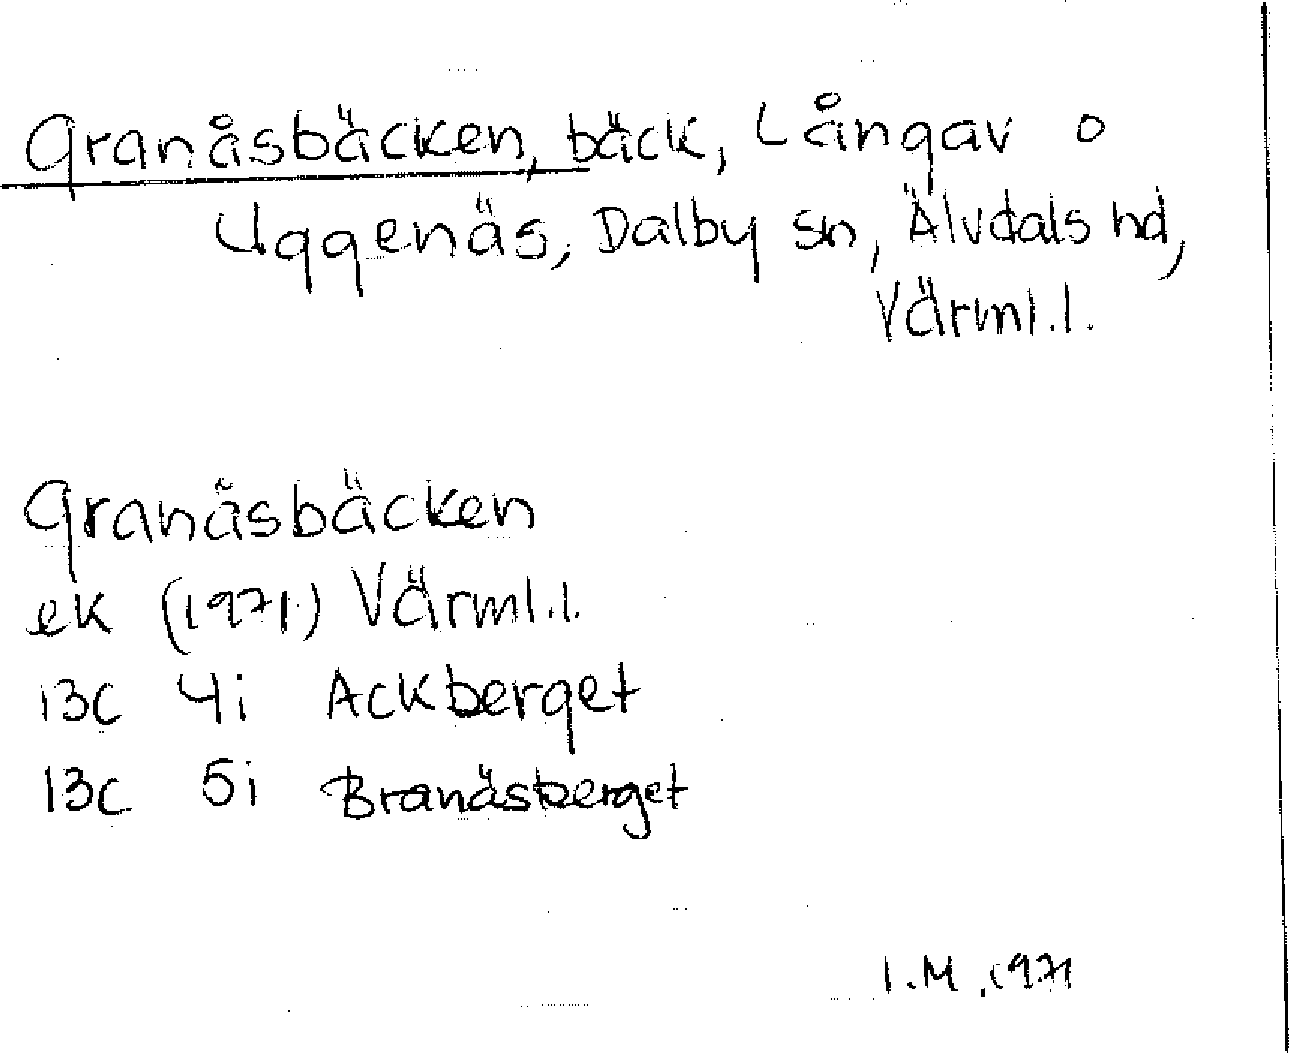 Granåsbäcken, bäck, Långav o
Uggenäs, Dalby sn, Älvdals hd,
Värml.l.
Granåsbäcken
ek (1971) Värml.l.
13C 4i Ackberget
13C 5i Branäsberget
I.M, 1971